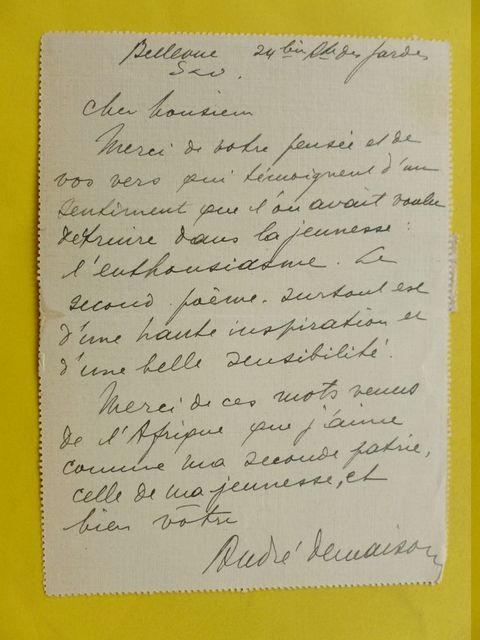 Bellevue 24 bis Rte des Gardes
S&O.
Cher Monsieur
Merci de votre pensée et de
vos vers qui témoignent d'un
sentiment que l'on avait voulu
détruire dans la jeunesse :
l'enthousiasme. Le
second poème surtout est
d'une haute inspiration et
d'une belle sensibilité.
Merci de ces mots venus
de l'Afrique que j'aime
comme ma seconde patrie,
celle de ma jeunesse, et
bien vôtre
André Demaison